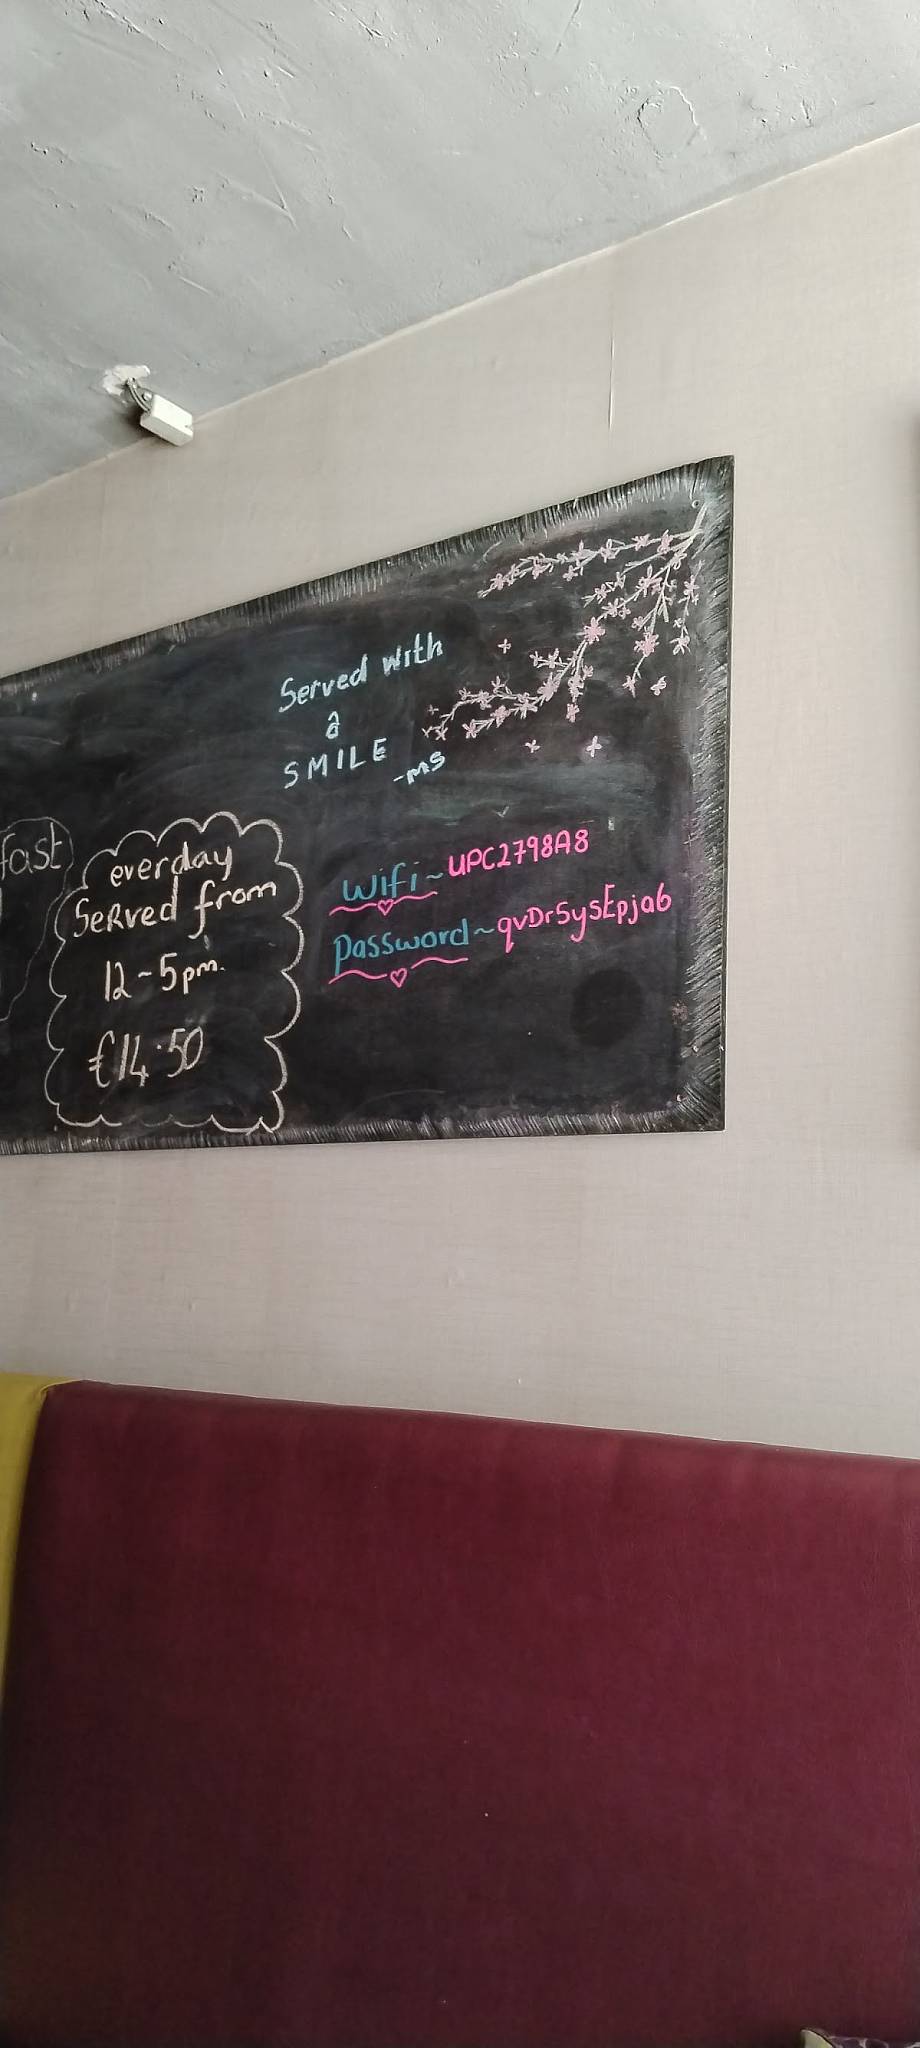 Served with
a
SMILE
-MS
fast
everday
Served from
12~5pm.
€14.50
Wifi~UPC2798A8
Password~qvDr5ysEpja6